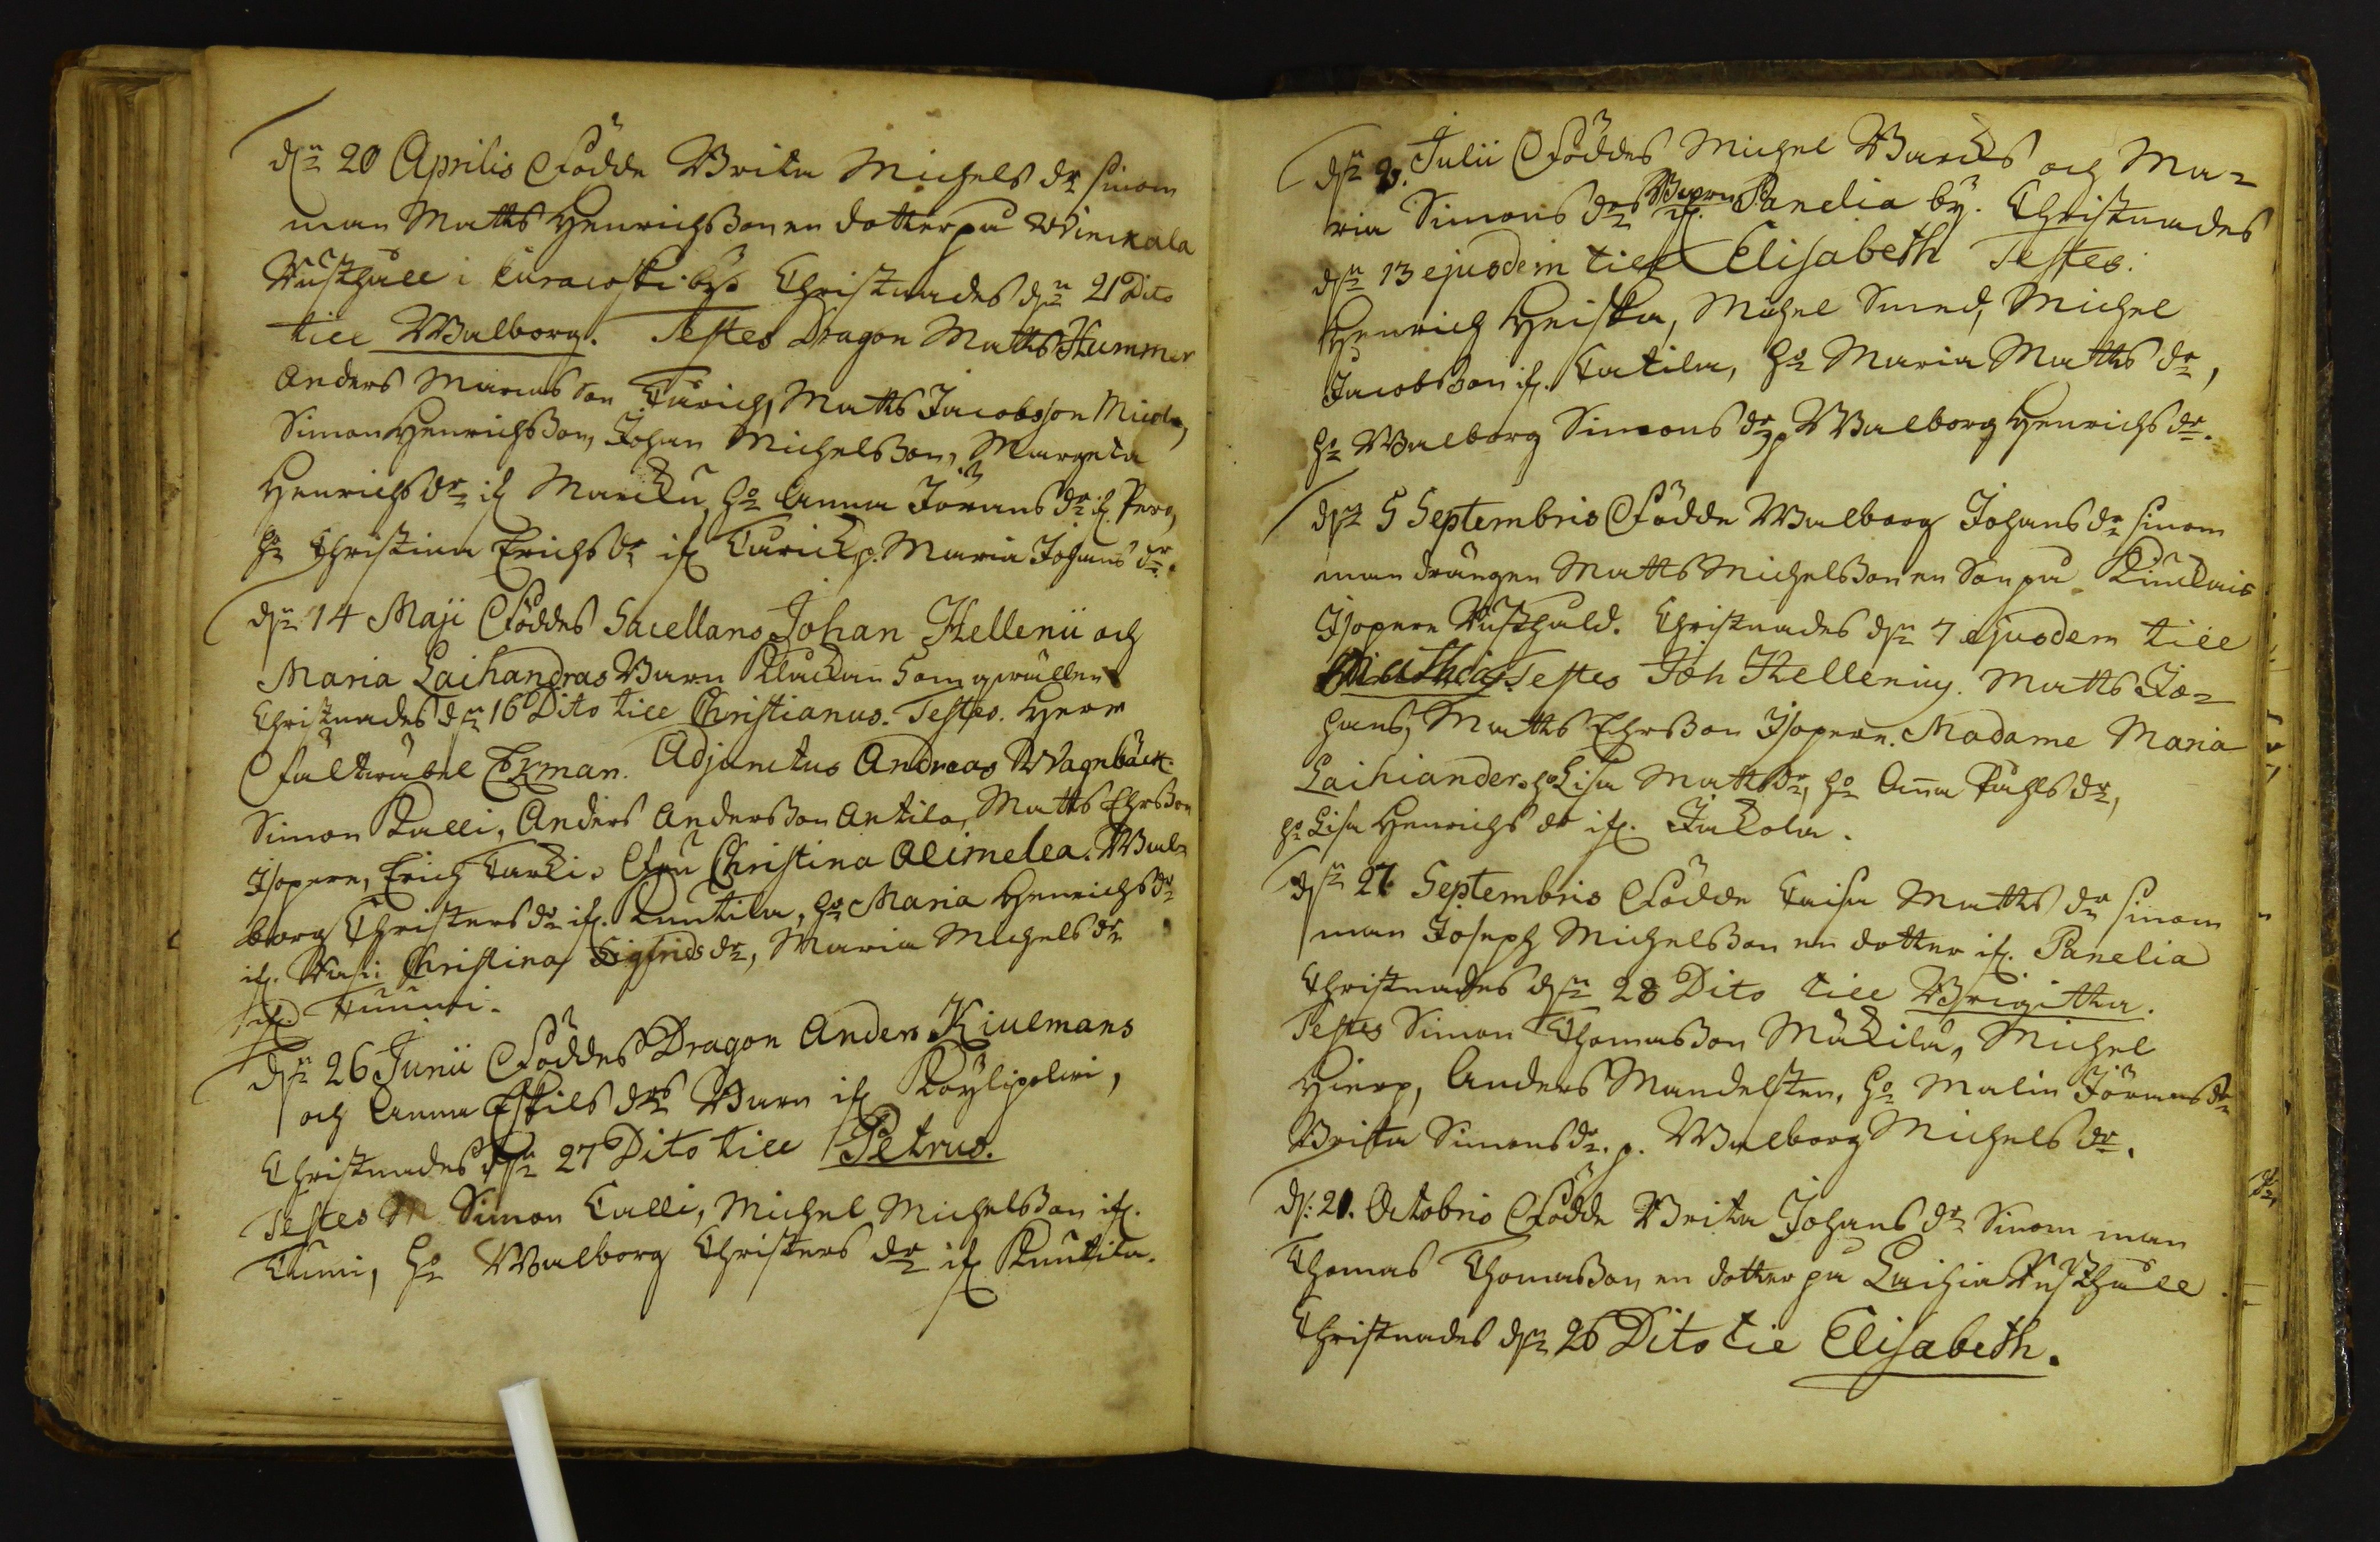 dn 20 Aprilis Födde Brita Michels dr sinom
man Matts Henrichsson en dotter på Wienkala
Rusthåll i Euracoski by. Christnades dn 21 Dito
till Walborg. Testes Dragon Matts Hummer
Anders Marcus Son Turick, Matts Jacobsson Micola,
Simon Henrichsson, Johan Michelsson, Margeta
Henrichs dr if. Marcku, ho Anna Jörans dr if. Pero,
ho Christina Erichs dr if Turick p. Maria Johans dr.
dn 14 Maji Föddes Sacellans Johan Hellenii och
Maria Laihandras Barn
Christnades dn 16 Dito till Christianus. Testes. Herr
Ekman. Adjunctus Andreas Wagnbäck.
Simon Kalli, Anders Andersson Antila, Matts Ehrsson
Isopere, Erich Turki. Fru Christina Alimelea. Wal-
borg Christers dr if. Knutila, ho Maria Henrichs dr
if. Christina Sigfrids dr, Maria Michels dr
if. Tuumi.
dn 26 Junii Föddes Dragon Anders Kiulmans
och Anna Eskils drs Barn if Köylipolvi,
Christnades dn 27 Dito till Petrus.
Testes Simon Calli, Michel Michelsson if.
Tumi, ho Walborg Christers dr if Knutila.
dn 9. Julii Föddes Michel Barcks och Ma-
ria Simons drs Barn if. Panelia by. Christnades
dn 13 ejusdem till Elisabeth Testes.
Henrich Heiska, Michel Smed, Michel
Jacobsson if. Tatila, ho Maria Matts dr,
ho Walborg Simons dr p Walborg Henrichs dr.
dn 5 Septembris Födde Walborg Johans dr sinom
man drängen Matts Michelsson en Son på Kiuckais
Isopere Rusthåld. Christnades dn 7 ejusdem till
Mathias. Testes Joh Hellenius. Matts Jo-
hans, Matts Ehrsson Isopere. Madame Maria
Laihiander. ho Lisa Matts dr, ho Anna Påhls dr,
ho Lisa Henrichs dr if. Jakola.
dn 27 Septembris Födde Caisa Matts dr sinom
man Joseph Michelsson en dotter if. Panelia
Christnades dn 28 Dito till Brigitha.
Testes Simon Thomasson Mäkilä, Michel
Hierp, Anders Mandelsten, ho Malin Jörans dr
Brita Simons dr. p. Walborg Michels dr.
d. 21. Octobris Födde Brita Johans dr Sinom man
Thomas Thomasson en dotter på Laihia Rusthåll
Christnades dn 26 Dito till Elisabeth.